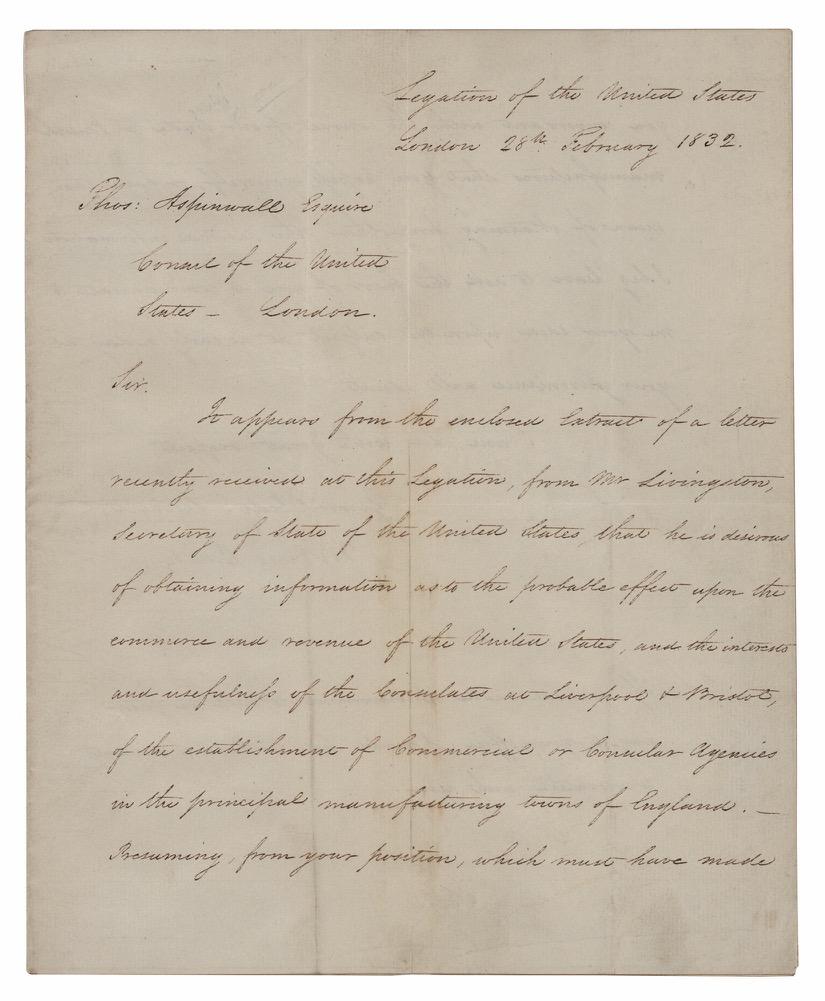 Legation of the United States
London 28th February 1832.
Thos: Aspinwall Esquire
Consul of the United
States – London.
Sir.
It appears from the enclosed Extract of a letter
recently received at this Legation, from Mr Livingston,
Secretary of State of the United States, that he is desirous
of obtaining information as to the probable effect upon the
commerce and revenue of the United States, and the interests
and usefulness of the Consulates at Liverpool & Bristol,
of the establishment of Commercial or Consular Agencies
in the principal manufacturing towns of England. —
Presuming, from your position, which must have made